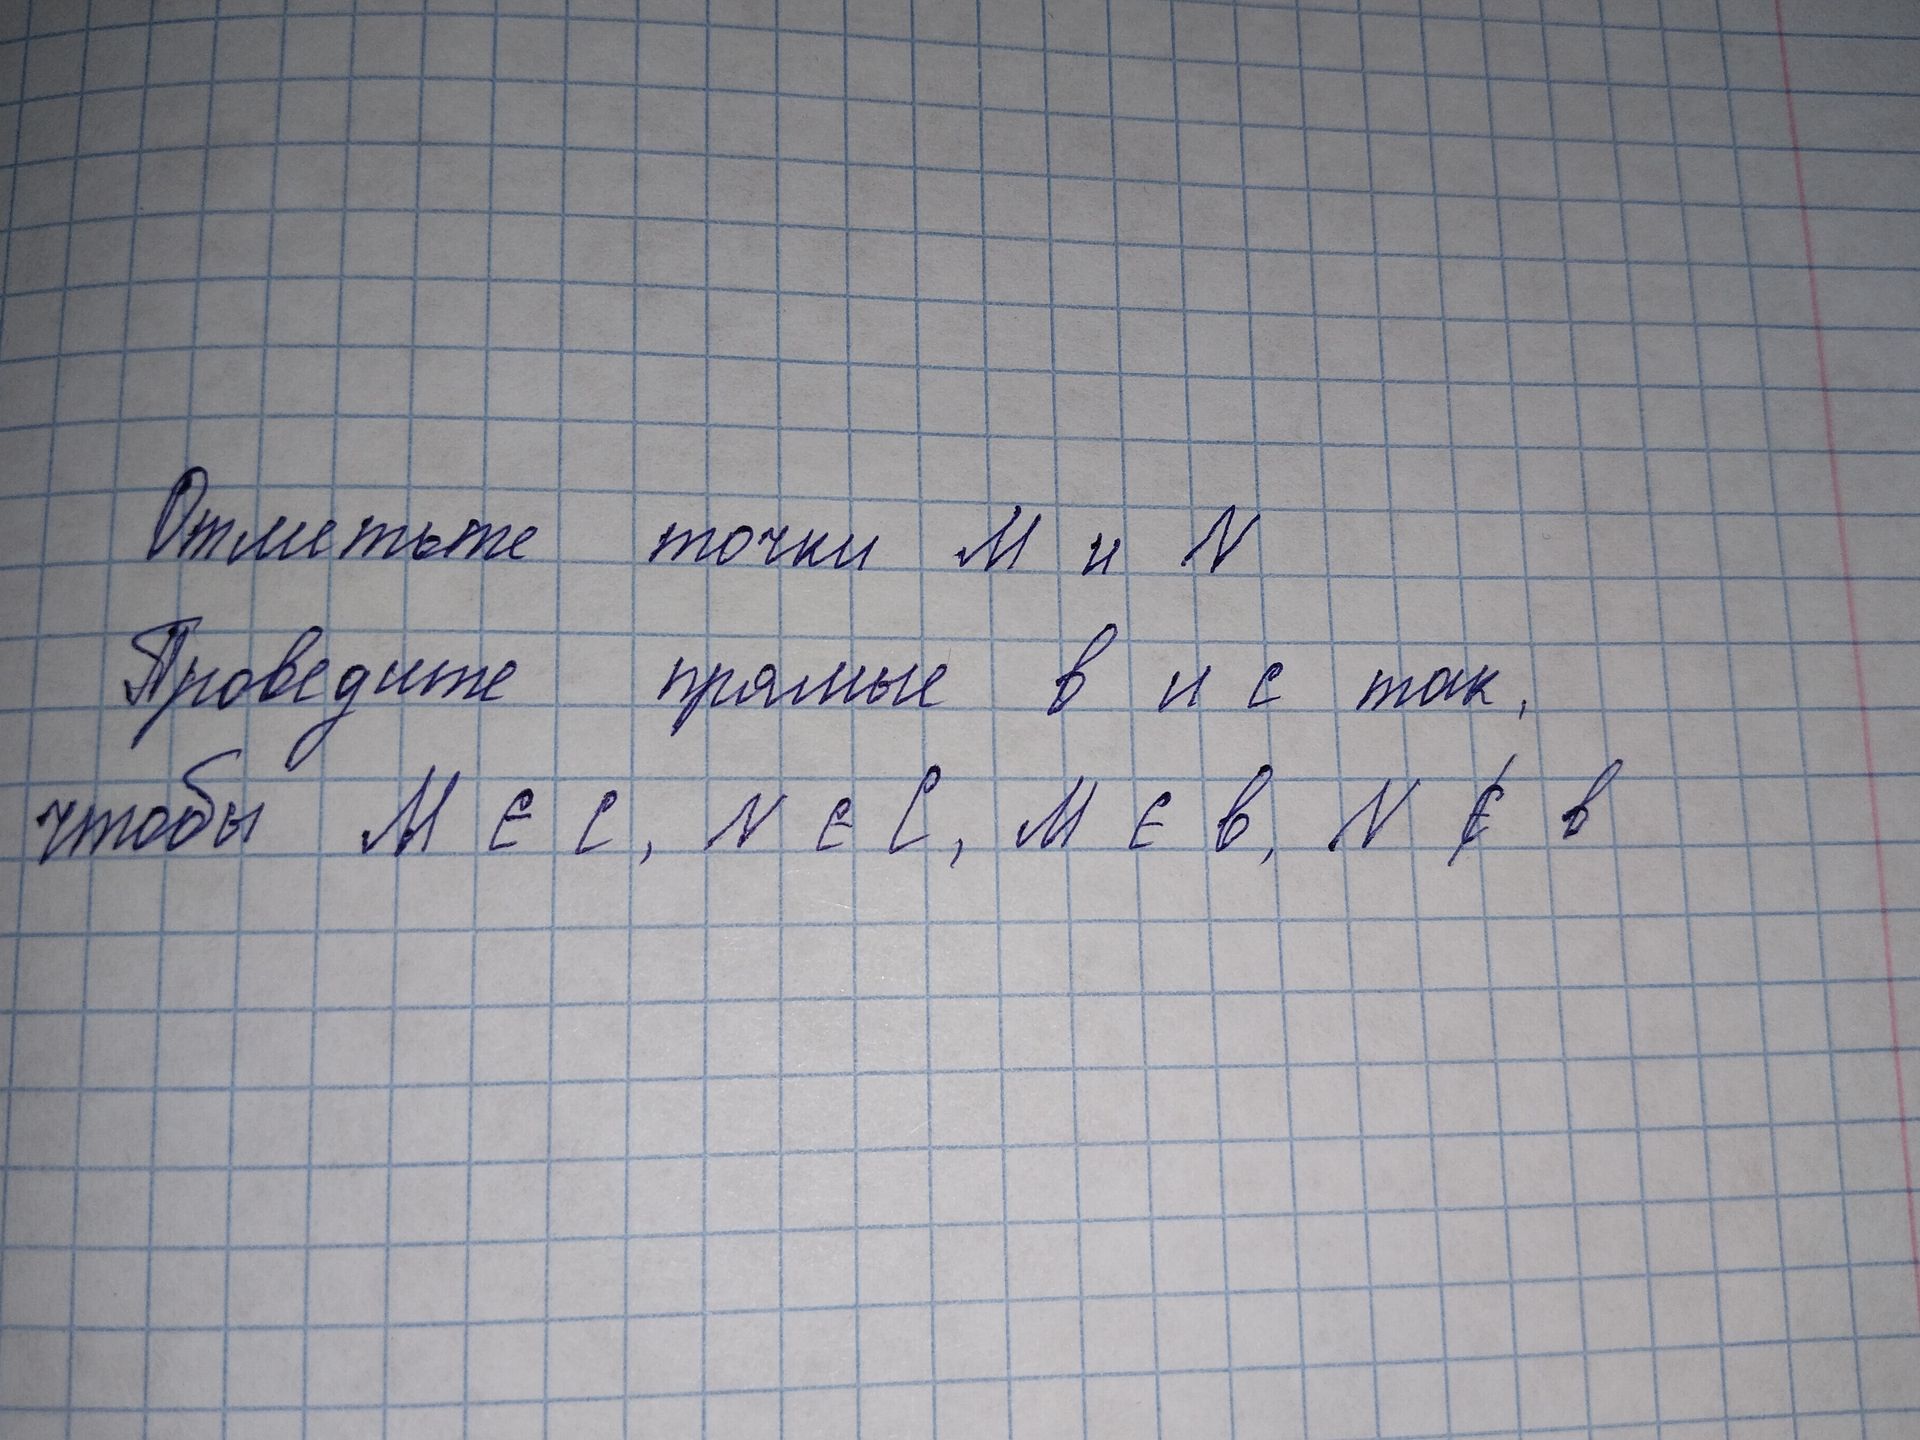 Отметьте точки M и N
Проведите прямые в и с так,
чтобы M ∈ C, N ∈ C, M ∈ в, N ∉ в